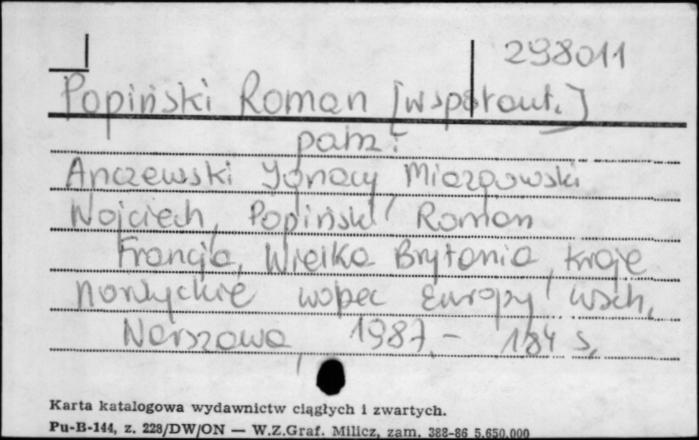 298011
Popiński Roman [współaut.]
patrz:
Anczewski Ignacy, Miazgowski
Wojciech, Popiński Roman
Francja, Wielka Brytania, kraje
nordyckie wobec Europy Wsch.
Warszawa, 1987. - 184 s.
Karta katalogowa wydawnictw ciągłych i zwartych.
Pu-B-144, z. 228/DW/ON — W.Z.Graf. Milicz, zam. 388-86 5.650.000